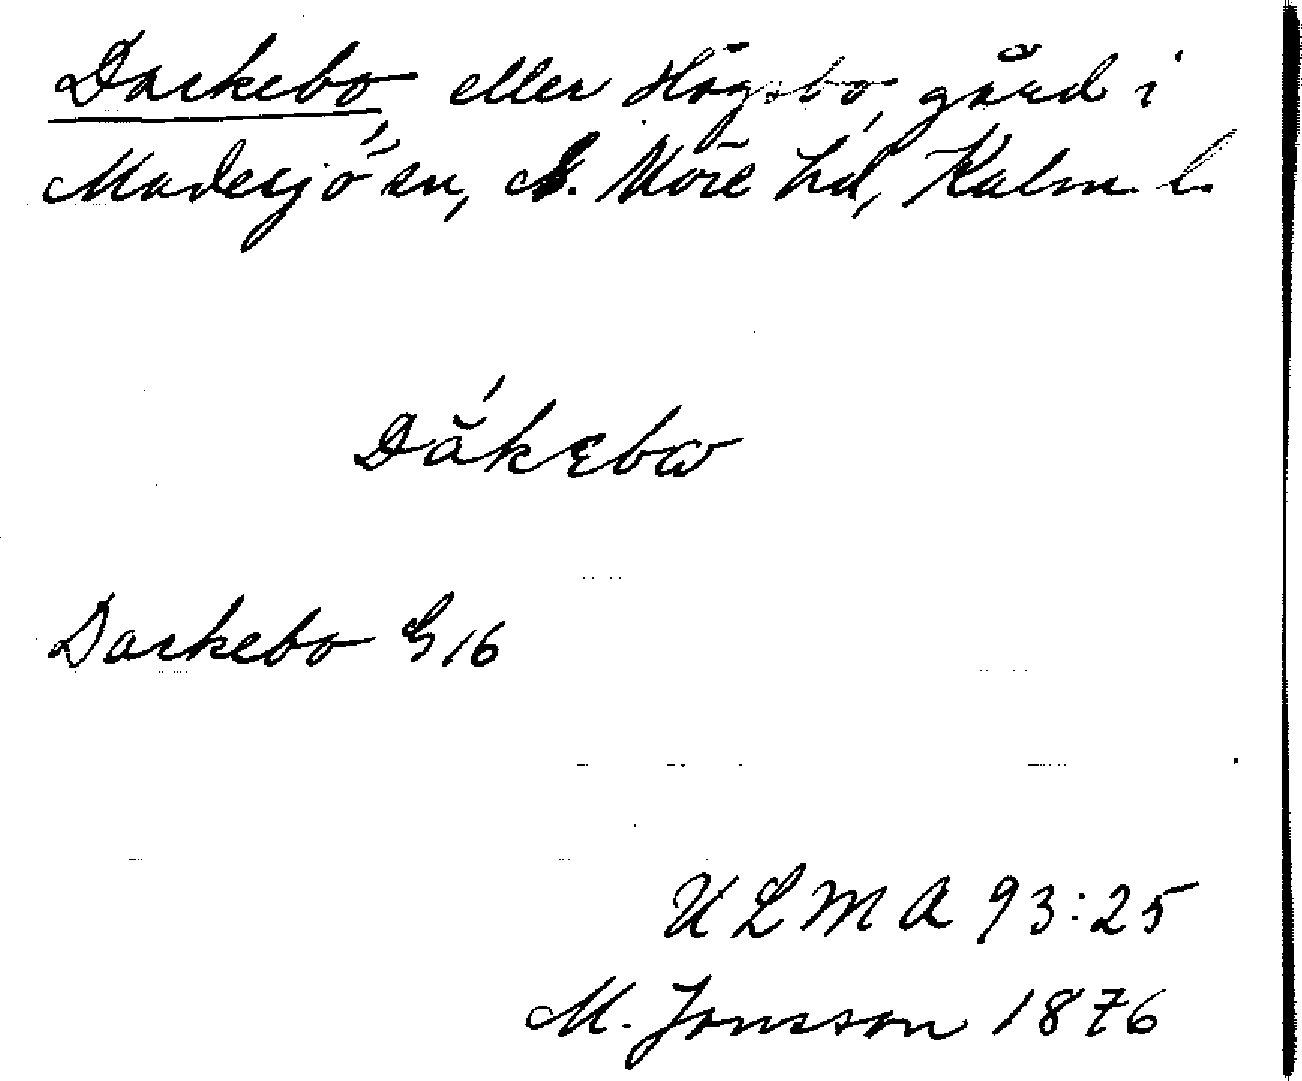 Darkebo eller Högsbo, gård i
Madesjö sn, S. Möre hd, Kalm l.
Dåkebω
Darkebo G16
ULMA 93:25
M. Jonsson 1876